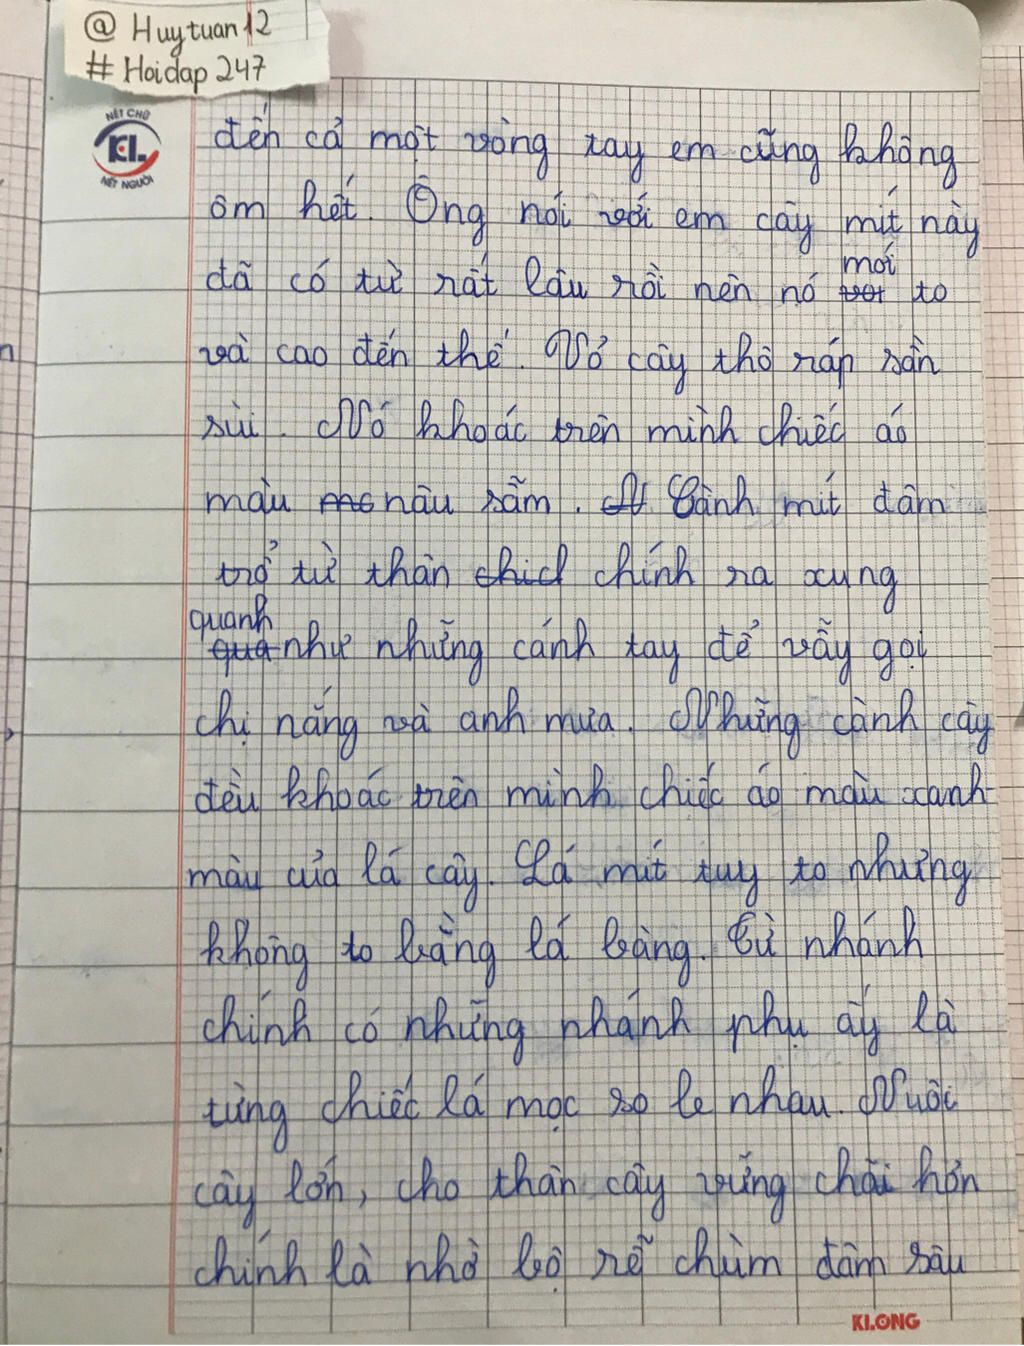 @ Huytuan12
# Hoidap 247
NÉT CHỮ
KL
NẾT NGƯỜI
đến cả một vòng tay em cũng không
ôm hết. Ông nói với em cây mít này
đã có từ rất lâu rồi nên nó mới to
và cao đến thế. Vỏ cây thô ráp sần
sùi. Nó khoác trên mình chiếc áo
màu nâu sẫm. Cành mít đâm
trổ từ thân chính ra xung
quanh như những cánh tay để vẫy gọi
chị nắng và anh mưa. Những cành cây
đều khoác trên mình chiếc áo màu xanh
màu của lá cây. Lá mít tuy to nhưng
không to bằng lá bàng. Từ nhánh
chính có những nhánh phụ ấy là
từng chiếc lá mọc so le nhau. Nuôi
cây lớn, cho thân cây vững chãi hơn
chính là nhờ bộ rễ chùm đâm sâu
KLONG